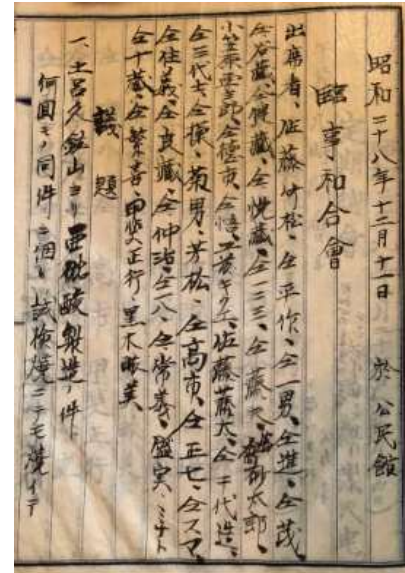 昭和二十八年十二月十一日 於公民館
臨事和合會
出席者、佐藤竹松、仝平作、仝一男、仝進、仝茂、
仝谷藏、仝健藏、仝悦藏、仝一二三、仝藤夫、砂太郎、
小笠原、仝德市、仝悟、佐藤藤太、仝千代造、
仝三代士、仝操、菊男、芳松、仝高市、仝正七、仝スマ、
仝住義、仝良藏、仝仲治、仝八、仝常義、盛実、ミサト
仝十藏、仝繁喜、甲斐正行、黒木
議題
一、土呂久鉱山ヨリ亜砒酸製造ノ件
何回モノ同件ニ個リ試検焼ニテモ焼イテ